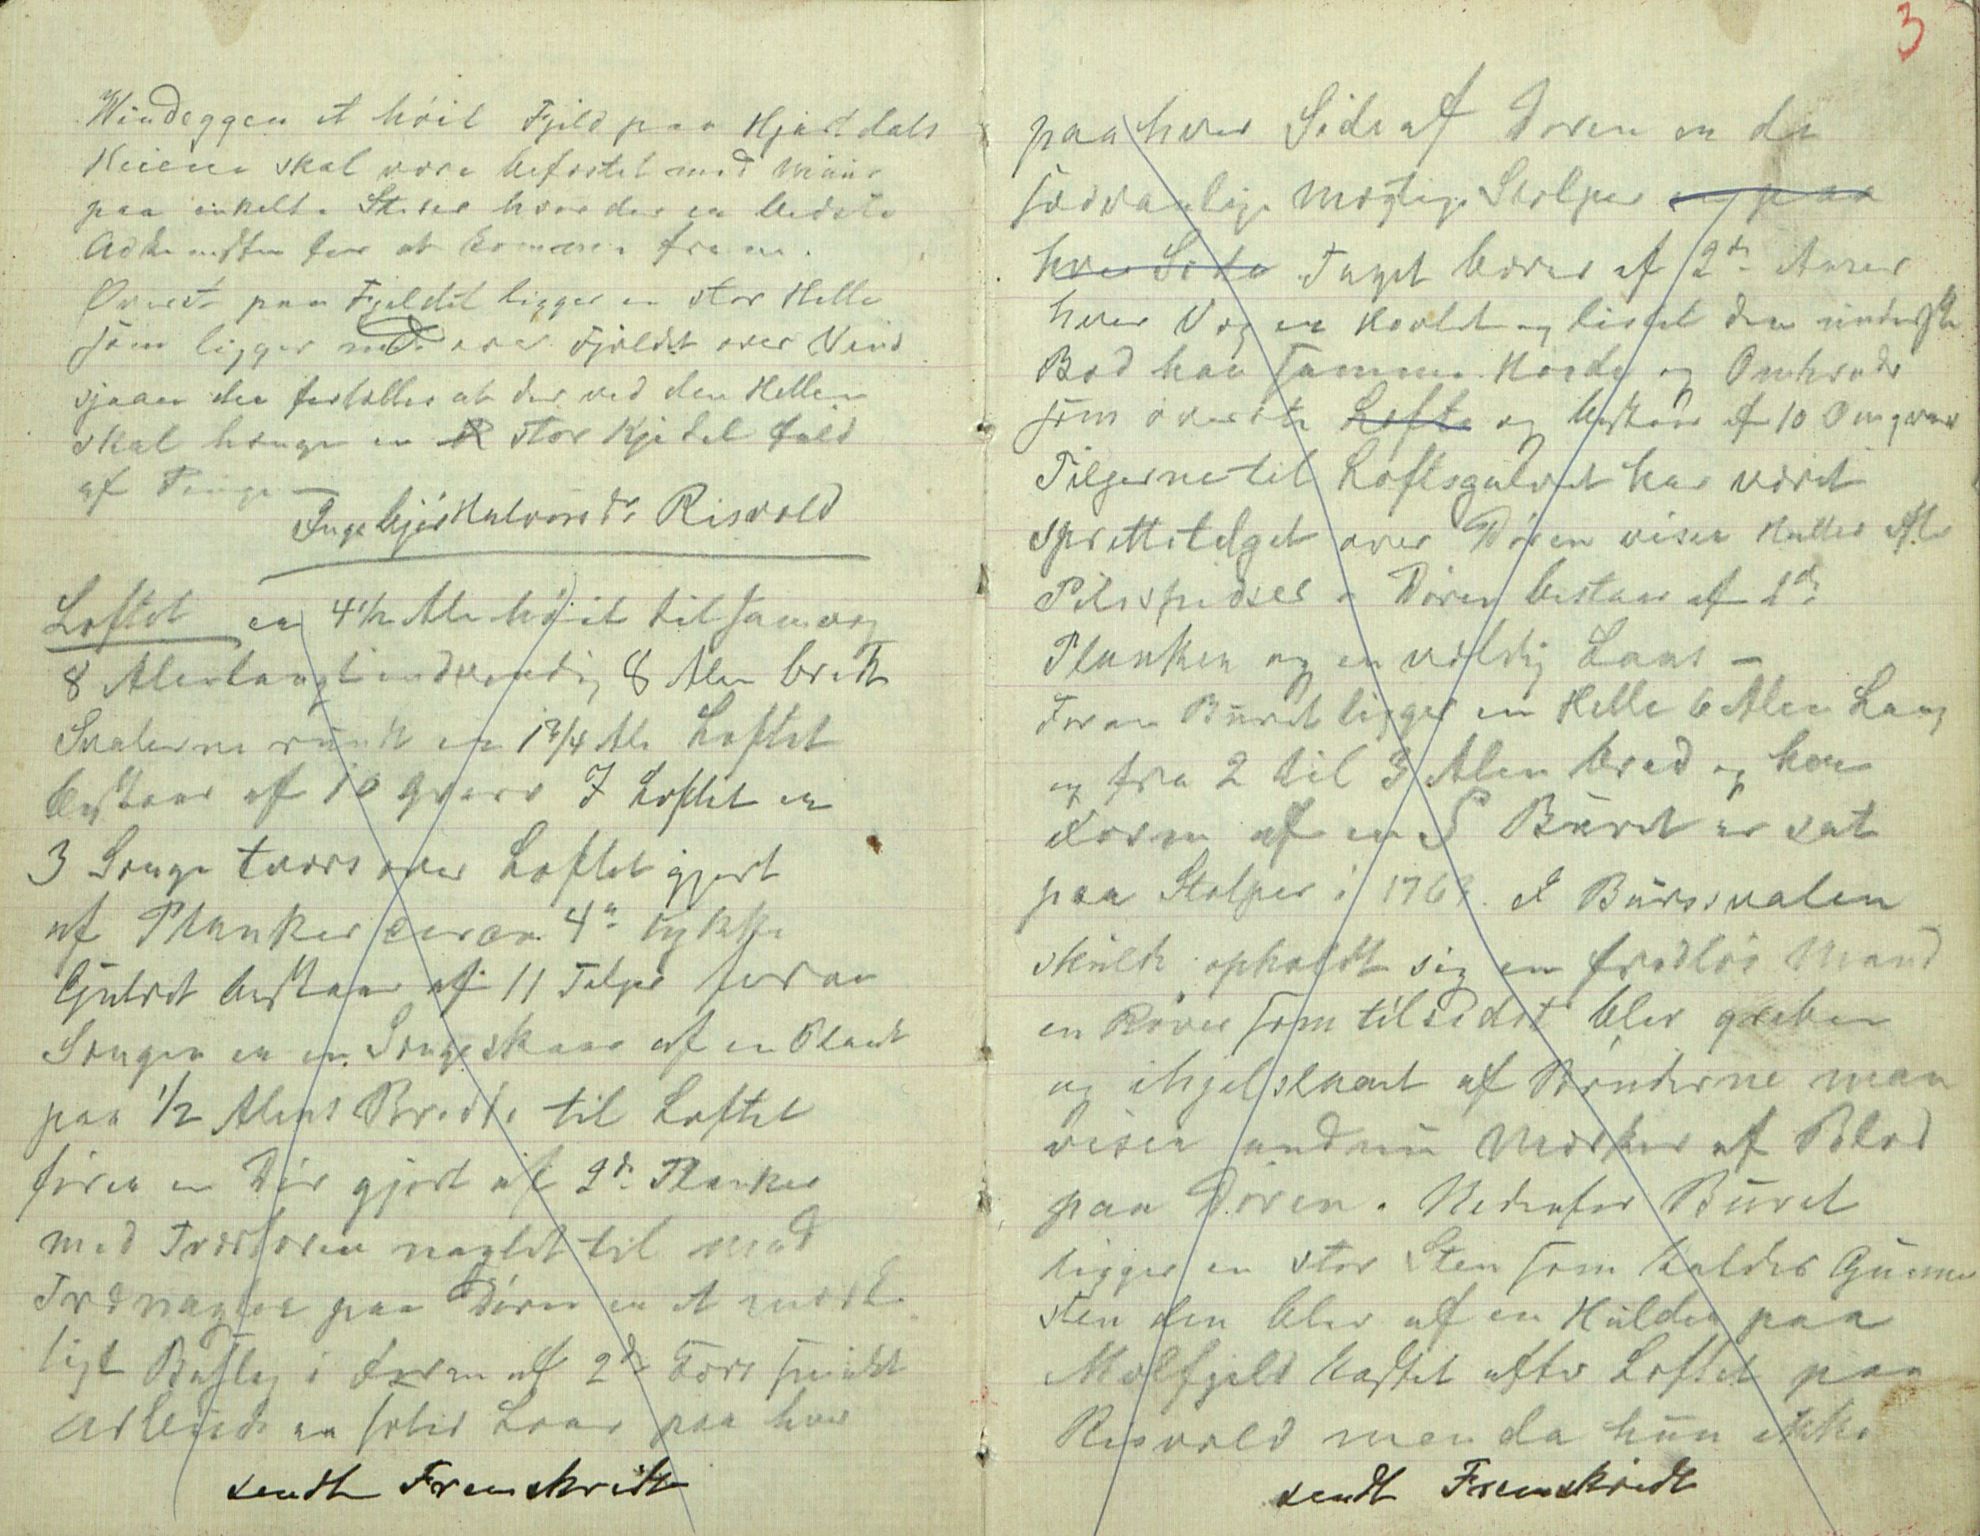 Windeggen et höit Fjeld paa Hjartdals
Heiene skal være befæstet med Muur
paa enkelte Steder hvor der er bedste
Adkomsten for at komme frem.
Överst paa Fjeldet ligger en stor Helle
som ligger ud over Fjeldet over Vind
sjaaen der fortælles at der ved den Hellen
skal hænge en stor Kjedel fuld
af Penge
Ingebjör Halvorsdr Risvold
Loftet er 4 1/2 Alen höit til samvæg
8 Alen langt indvendig 8 Alen bredt
Svalerne rundt er 1 3/4 Al. Loftet
bestaar af 10 Qvarv I Loftet er
3 Senge tværs over Loftet gjort
af Planker circa 4" tykke
Gulvet bestaar af 11 Telger foran
Sengen er en Sengeskaar af en Plank
paa 1/2 Alens Bredde til Loftet
förer en Dör gjort af 2de Planker
med Tværtræer naglet til med
Trænagler paa Dören er et mærke
ligt Beslag i Form af 2de Kors smidd
Arbeide en solid Laas paa hver
sendt Fremskridt
3
paa hver Side af Dören er de
sædvanlige mægtige Stolper en paa
hver Side Taget bæres af 2de Aaser
hver Væg er Hövlet og listet den underste
Bod har samme Höide og Omkreds
som överste Loft og bestaar af 10 Omqvarv
Tilgerne til Loftsgulvet har været
sprettetelget over Dören vises Huller efter
Pilespidser Dören bestaar af 2de
Planker og en vældig Laas –
Foran Buret ligger en Helle 6 Alen Lang
og fra 2 til 3 Alen bred og har
Form af en S Buret er sat
paa Stolper i 176 . I Bursvalen
skulde opholdt sig en fredlös Mand
en Röver som tilsidst blev greben
og ihjelslaaet af Bönderne man
viser endnu Mærker af Blod
paa Dören. Nedenfor Buret
ligger en stor Sten som kaldes Gunne
sten den blev af en Hulder paa
Mælfjeld kastet efter Loftet paa
Risvold men da hun ikke
sendt Fremskridt